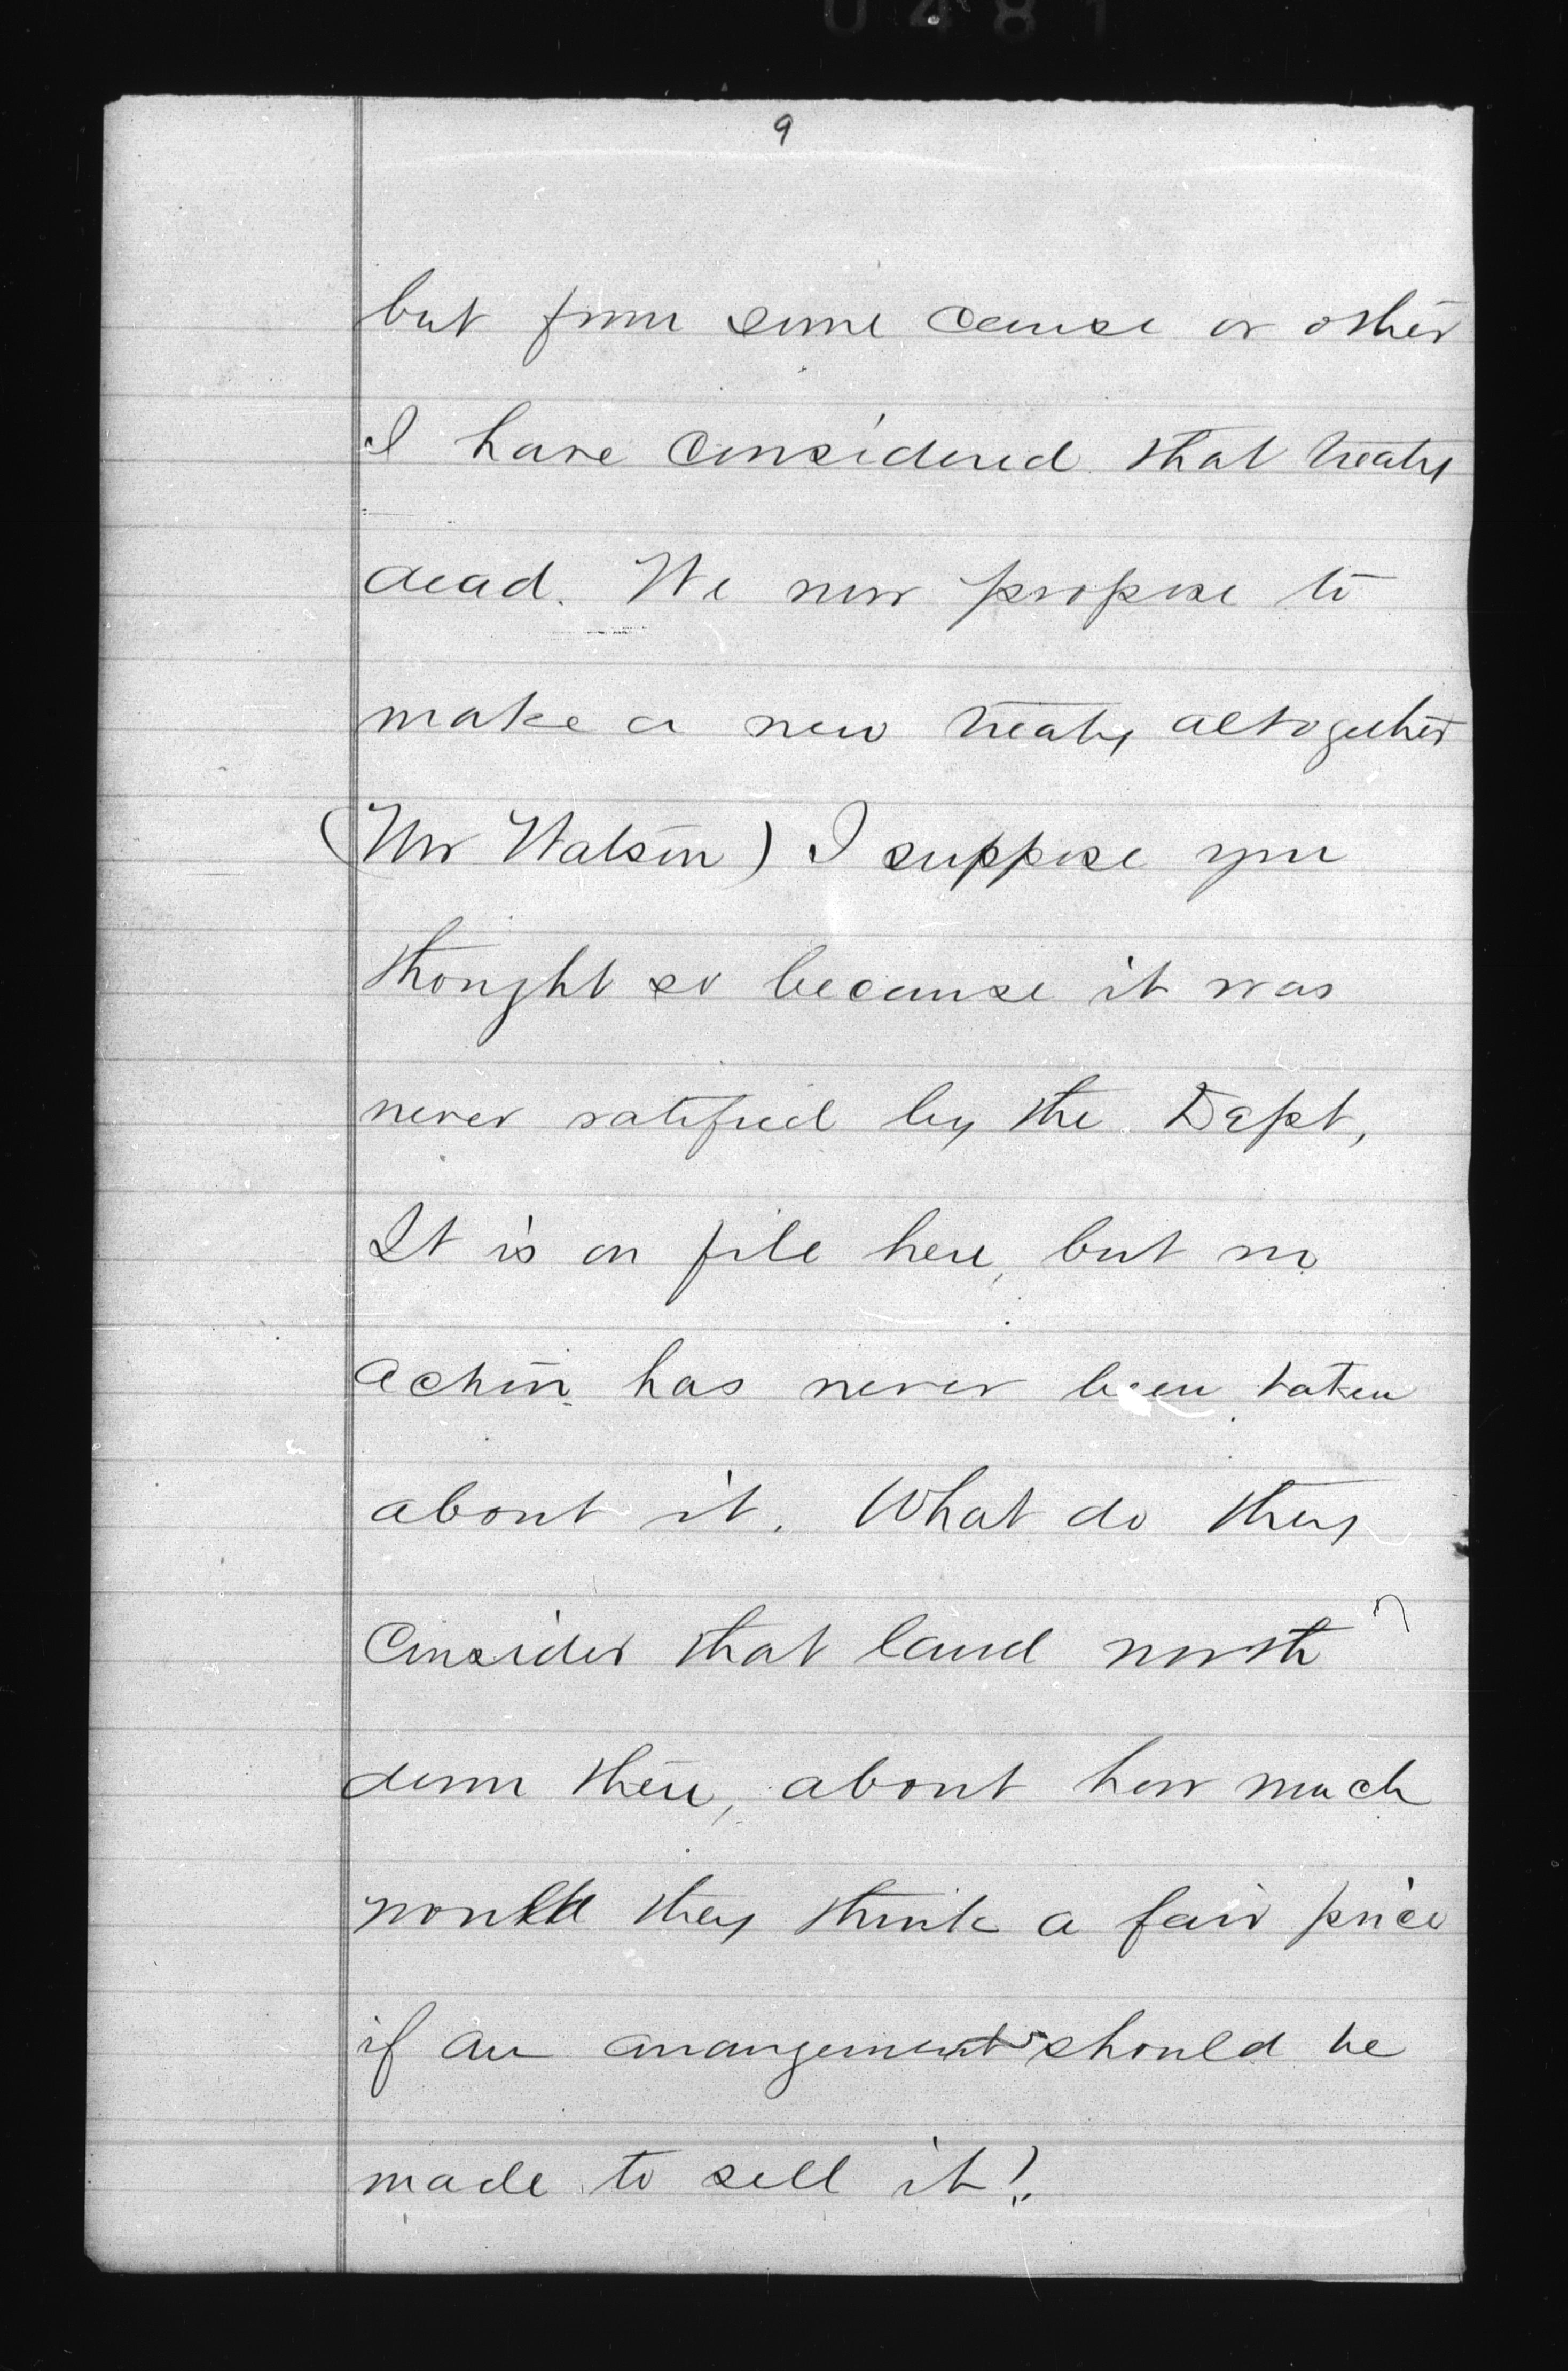 0481
9
but from some cause or other
I have considered that treaty
dead. We now propose to
make a new treaty altogether
(Mr Watson) I suppose you
thought so because it was
never ratified by the Dept,
It is on file here, but no
action has never been taken
about it. What do they
Consider that land worth
down there, about how much
would they think a fair price
if an arrangement should be
made to sell it?